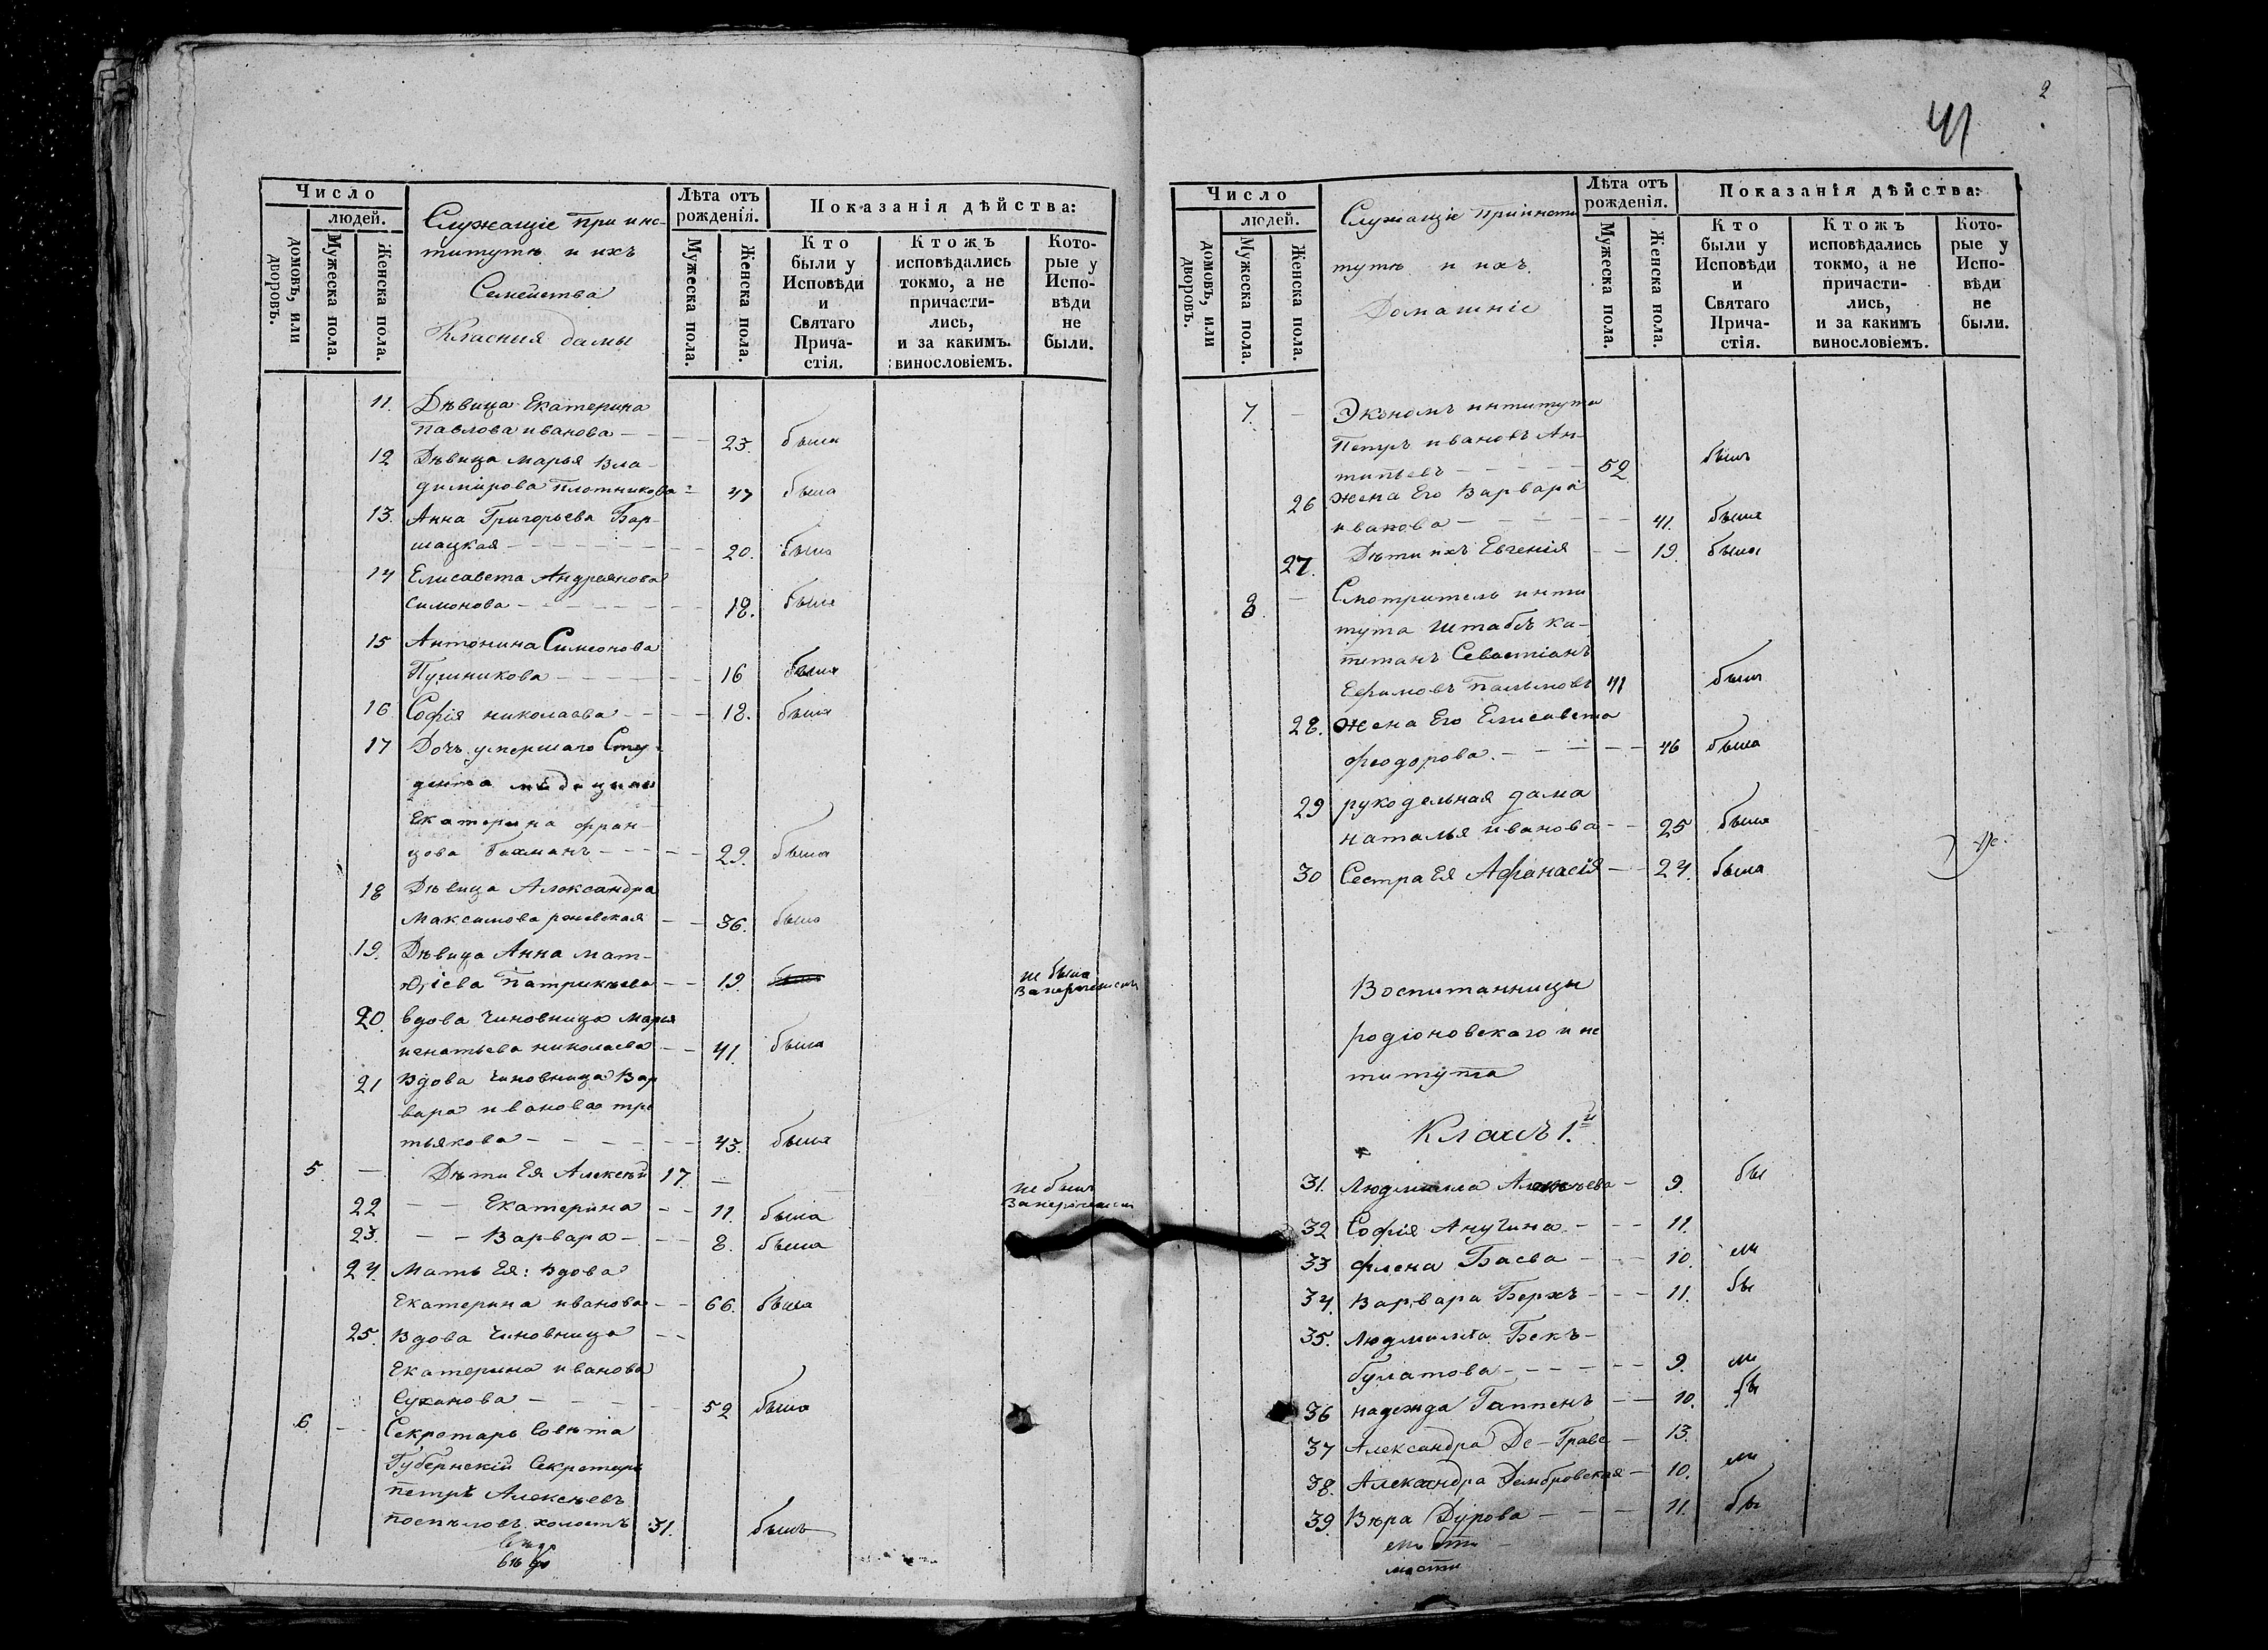 Число
людей.
домовъ, или дворовъ.
Мужеска пола.
Женска пола.
Служащіе при инс-
титутѣ и ихъ
Семейства
Класныя дамы
Лѣта отъ рожденія.
Мужеска пола.
Женска пола.
Показанія дѣйства:
Кто были у Исповѣди и Святаго Прича-стія.
Ктожъ исповѣдались токмо, а не причасти-лись, и за какимъ винословіемъ.
Кото-рые у Испо-вѣди не были.
11. Дѣвица Екатерина
Павлова иванова - - - 23. была
12 Дѣвица Марья Вла-
димірова Плотникова - 47 была
13. Анна Григорьева Бар-
шацкая - - - 20. была
14 Елисавета Андреянова
Симонова - - - 18. была
15 Антонина Симеонова
Пушникова - - - 16 была
16 Софія николаева - - - 18. была
17 Дочь умершаго Сту-
дента медицины
Екатерина фран-
цова Бахманъ - - - 29. была
18 Дѣвица Александра
Максимова раевская - - 36. была
19. Дѣвица Анна Мат-
фіева Патрикѣева - - 19. не была
20. вдова чиновница Марья
игнатьева николаева - - 41. была
21 Вдова чиновница Вар
вара иванова тре
тьякова - - - 43. была
5. - Дѣти Ея Алексѣй 17. - не былъ
22 - - Екатерина - - 11. была
23. - - Варвара - - - 8. была
24. Мать Ея: Вдова
Екатерина иванова - - 66. была
25. Вдова чиновница - -
Екатерина иванова
Суханова - - - 52 была
6 - - Секретарь Совѣта
Губернскій Секретарь
Петръ Алексѣевъ
Поспѣловъ холостъ 31. былъ
2
41
Число
людей.
домовъ, или дворовъ.
Мужеска пола.
Женска пола.
Служащіе при инсти
тутѣ и ихъ
Домашніе
Лѣта отъ рожденія.
Мужеска пола.
Женска пола.
Показанія дѣйства:
Кто были у Исповѣди и Святаго Прича-стія.
Ктожъ исповѣдались токмо, а не причасти-лись, и за какимъ винословіемъ.
Кото-рые у Испо-вѣди не были.
7. - Экономъ интитута
Петръ ивановъ Ан-
типьевъ - - - 52 былъ
26 Жена Его Варвара
иванова - - - 41. была
27. Дѣти ихъ Евгенія - - 19. была
8. - Смотритель инти
тута Штабсъ ка-
питанъ Севастіанъ
Ефимовъ Пальмовъ 41 былъ
28. Жена Его Елисавета
феодорова. - - - 46 была
29 рукодельная дама
наталья иванова - - 25 была
30 Сестра Ея Афанасія - - 24. была
Воспитанницы
родіоновскаго инс
титута
Классъ 1.й
31. Людмила - 9. бы
32 Софія Анучина - - - 11.
33 флена Баева - - - 10. ли
34. Варвара Берхъ - - - 11. бы
35. Людмила Бекъ-
булатова - - - 9. ли
36 надежда Гаппенъ - - 10. бы
37 Александра Де-Граве - 13.
38. Алекандра Домбровская - 10. ли
39. Вѣра Дурова - - - 11. бы